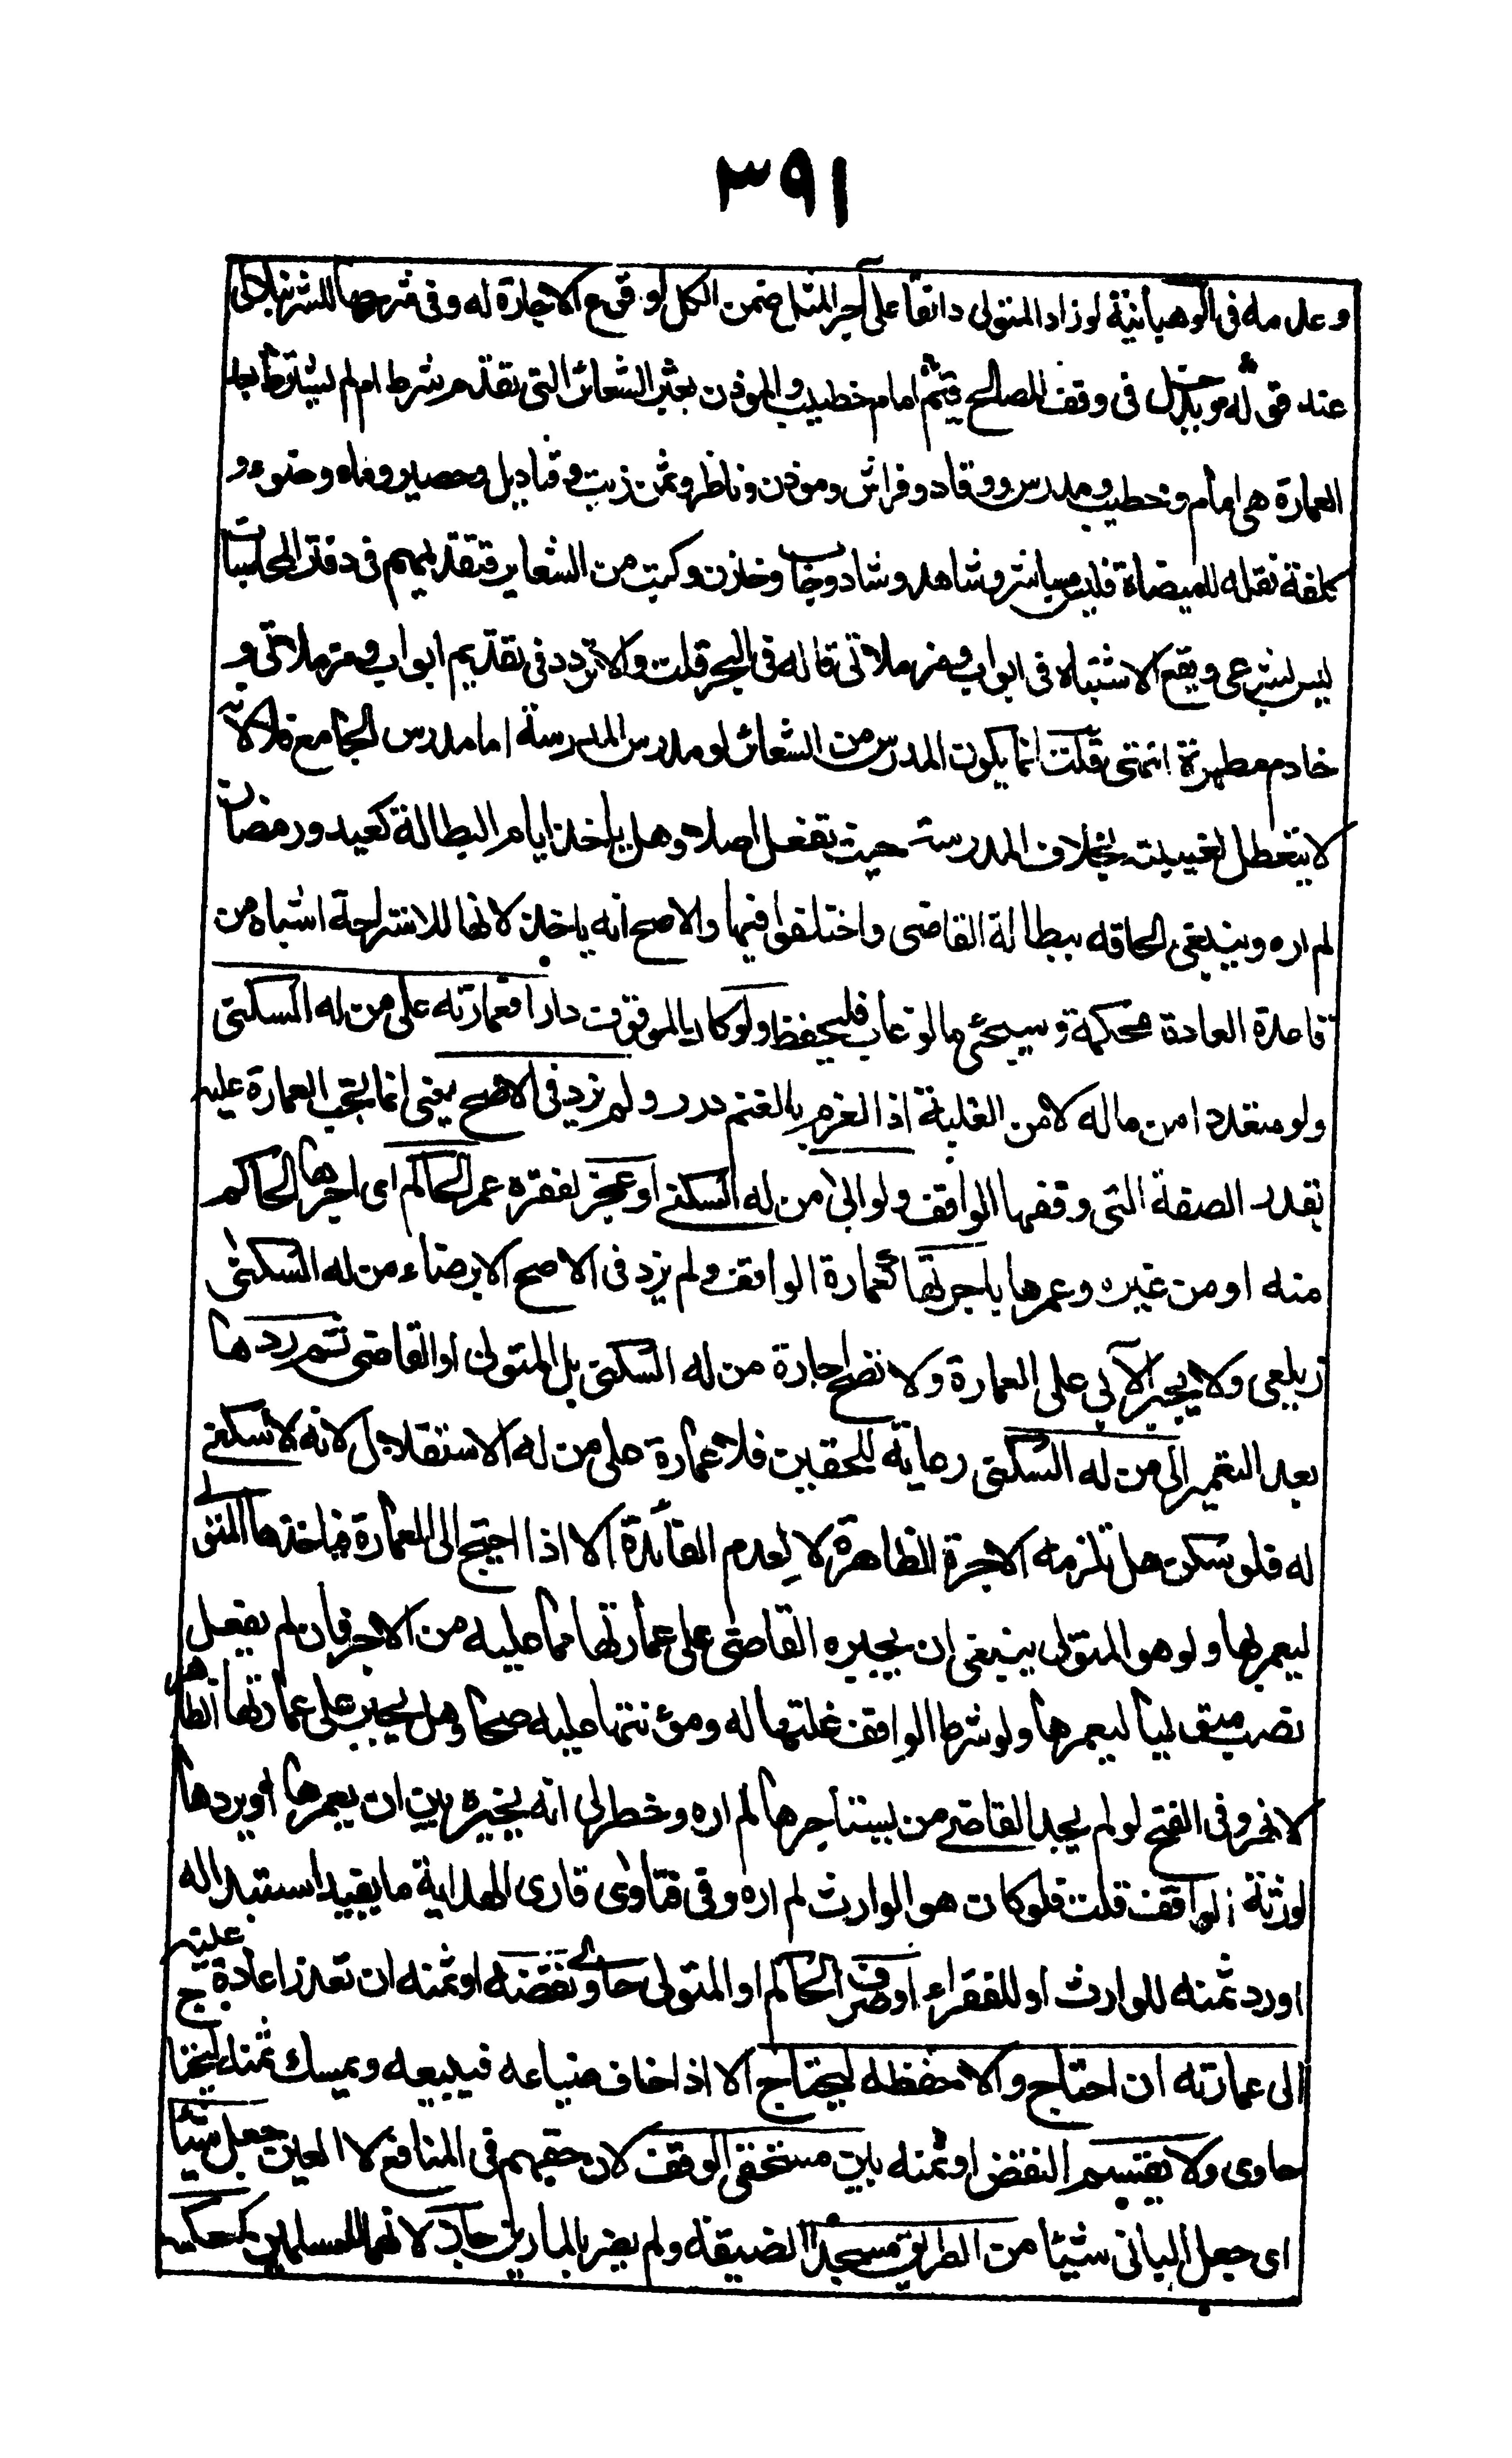 ٣٩١
وعدمه في الوهبانية لو زاد المتولى دانقا على اجر المثل ضمن الكل لوقوع الاجارة له وفى شرحها للشرنبلالى
عند قوله ويدخل فى وقف المصالح قيم امام خطيب والموذن يعبر الشعائر التى تقدم شرط ام لم يشترط بعد
العمارة هى امام وخطيب ومدرس ووقاد وفراش وموذن وناظر وثمن زيت وقناديل وحصير وماء وضوء و
كلفة نقله للميضاة فليس مباشر وشاهد وشاد وجاب وخازن وكتب من الشعاير فتقديمهم فى دفتر المحاسبات
ليس بشرعى ويقع الاشتباه فى ابواب ومزملاتى قاله فى البحر قلت ولا تردد فى تقديم ابواب ومزملاتى و
خادم مطهرة انتهى قلت انما يكون المدرس من الشعائر لو مدرس المدرسة اما مدرس الجامع فلا لانه
لا يتعطل لغيبته بخلاف المدرسة حيث تقفل اصلا وهل ياخذ ايام البطالة كعيد ورمضان
لم اره وينبغى الحاقه ببطالة القاضى واختلفوا فيها والاصح انه ياخذ لانها للاستراحة اشباه من
قاعدة العادة محكمة وسيجئ مالو غاب فليحفظ ولو كان الموقوف دارا فعمارته على من له السكنى
ولو متعددا من ماله لا من الغلة اذ الغرم بالغنم درر ولم يزد فى الاصح يعنى انما تجب العمارة عليه
بقدر الصفة التى وقفها الواقف ولو ابى من له السكنى او عجز لفقره عمر الحاكم اى اجرها الحاكم
منه او من غيره وعمرها باجرتها كعمارة الواقف ولم يزد فى الاصح الا برضاء من له السكنى
زيلعى ولا يجبر الآبى على العمارة ولا تصح اجارة من له السكنى بل المتولى او القاضى ثم ردها
بعد التعمير الى من له السكنى رعاية للحقين فلا عمارة على من له الاستقلال لانه لا سكنى
له فلو سكن هل تلزمه الاجرة الظاهرة لا لعدم الفائدة الا اذا احتيج الى العمارة فياخذها المتولى
ليعمر بها ولو هو المتولى ينبغى ان يجبره القاضى على عمارتها مما عليه من الاجر فان لم يفعل
نصب متوليا ليعمرها ولو شرط الواقف غلتها له ومؤنتها عليه صحا وهل يجبر على عمارتها الظاهر
لا نهر وفى الفتح لو لم يجد القاضى من يستاجرها لم اره وخطر لى انه يخيره بين ان يعمرها او يردها
لورثة الواقف قلت فلو كان هو الوارث لم اره وفى فتاوى قارى الهداية ما يفيد استبداله
او رد ثمنه للوارث او للفقراء وصرف الحاكم او المتولى حاوى نقضه او ثمنه ان تعذر اعادة عينه
الى عمارته ان احتاج والا حفظه ليحتاج الا اذا خاف ضياعه فيبيعه ويمسك ثمنه ليحتاج
حاوى ولا يقتسم النقض او ثمنه بين مستحقى الوقف لان حقهم فى المنافع لا العين جعل شيئا
اى جعل البانى شيئا من الطريق مسجدا لضيقه ولم يضر بالمارين جاز لانهما للمسلمين كعكسه